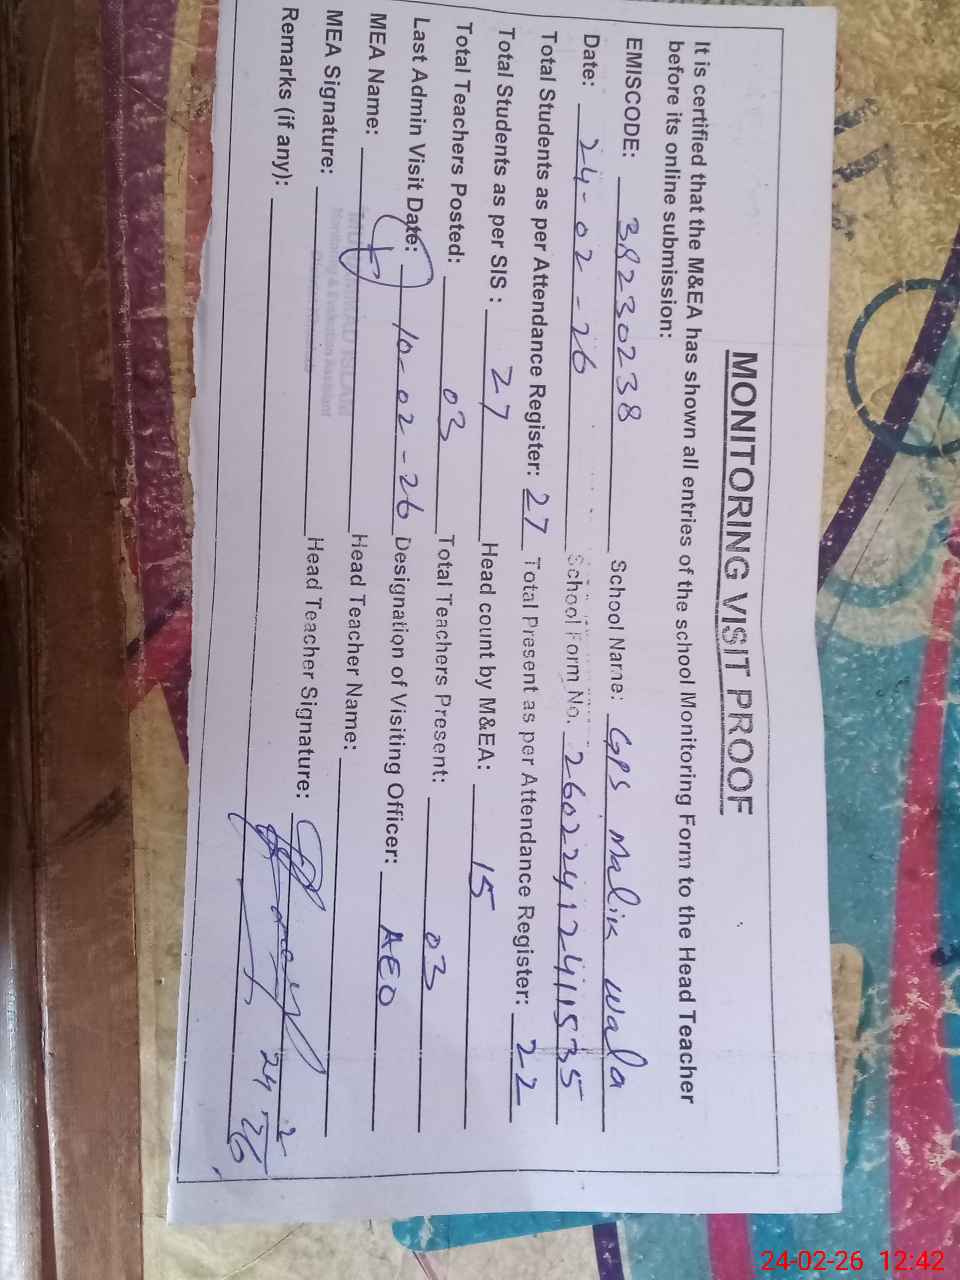 MONITORING VISIT PROOF
It is certified that the M&EA has shown all entries of the school Monitoring Form to the Head Teacher
before its online submission:
EMISCODE: 38230238 School Name: GPS Malik wala
Date: 24-02-26 School Form No. 260224124111535
Total Students as per Attendance Register: 27 Total Present as per Attendance Register: 22
Total Students as per SIS : 27 Head count by M&EA: 15
Total Teachers Posted: 03 Total Teachers Present: 03
Last Admin Visit Date: 10-02-26 Designation of Visiting Officer: AEO
MEA Name: Head Teacher Name:
MEA Signature: Head Teacher Signature:
Remarks (if any): 24/2/26
ISLAM
Monitoring & Evaluation Assistant
24-02-26 12:42